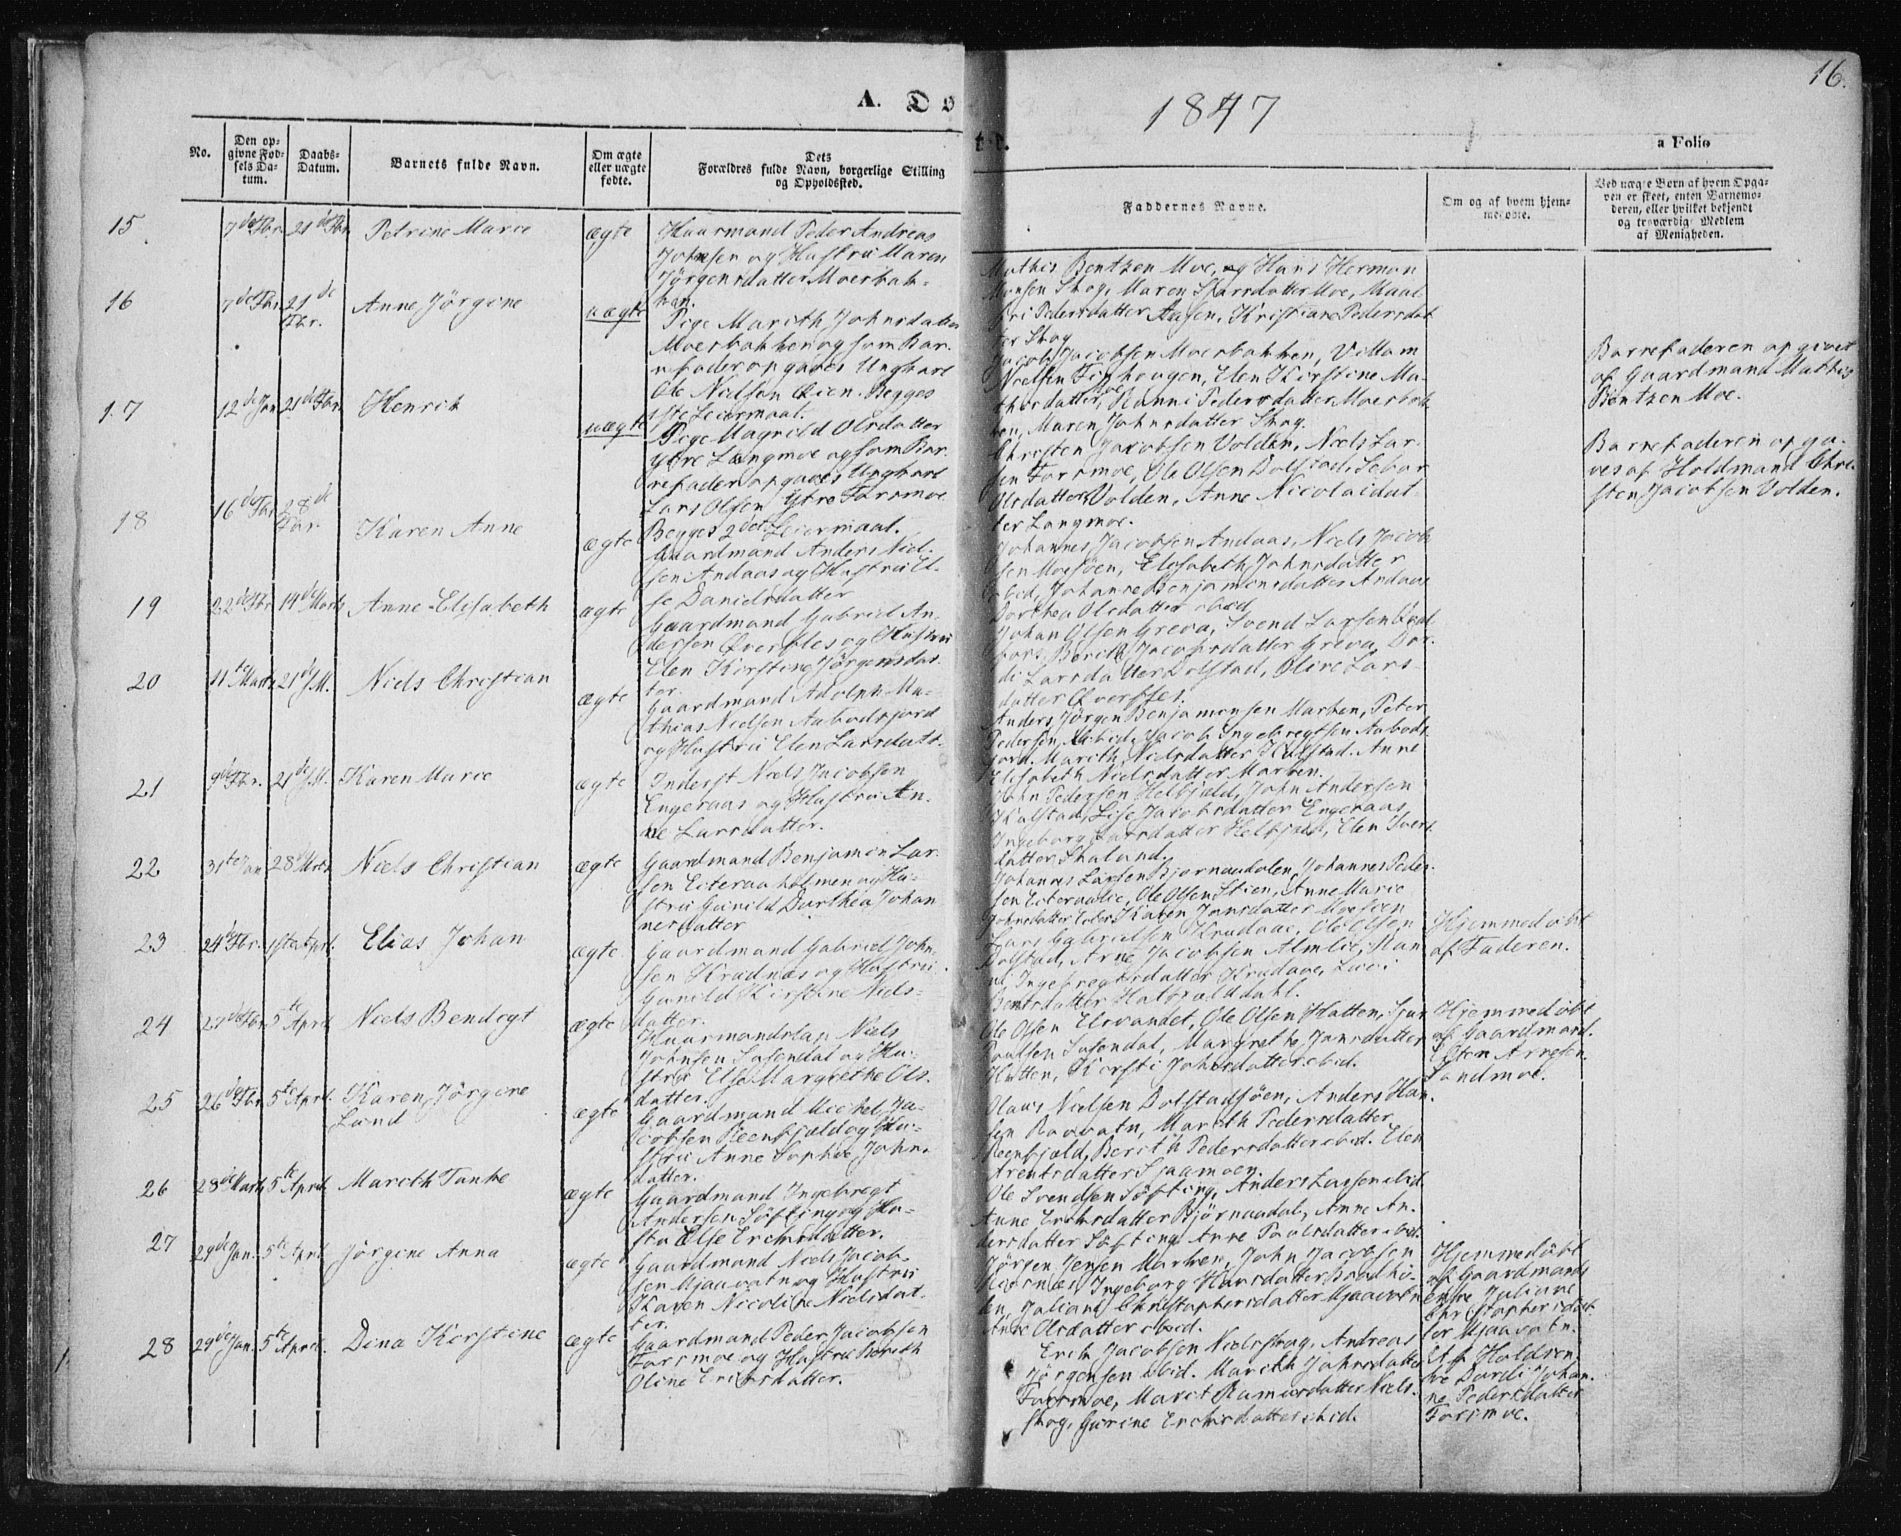 16.
A. Dø
bt.
1847
a Folio
No.
Den op-
givne Fød-
sels Da-
tum.
Daabs-
Datum.
Barnets fulde Navn.
Om ægte
eller uægte
fødte.
Dets
Forældres fulde Navn, borgerlige Stilling
og Opholdssted.
Faddernes Navne.
Om og af hvem hjem-
medøbte.
Ved uægte Børn af hvem Opga-
ven er skeet, enten Barnemo-
deren, eller hvilket bekjendt
og troværdigt Medlem
af Menigheden.
15.
7de Fbr. 21de Fbr.
Petrine Marie
ægte
Huusmand Peder Andreas
Johnsen og Hustru Maren
Jørgensdatter Moesbak-
ken.
Mathis Bentzen Moe, og Hans Herman
Monsen Skog, Maren Skarsdatter Moe, Maal
fri Pedersdatter Aasen, Kristiane Pedersdat
ter Skog
16
7de Fbr. 21de
Fbr.
Anne Jørgine
uægte
Pige Marith Johnsdatter
Moesbakken og som Bar-
nefader opgaves Ungkarl
Ole Nielsen Øien. Begges
1ste Leiermaal.
Jacob Jacobsen Moesbakken, Villum
Nielsen Finhaugen, Elen Kirstine Ma-
thisdatter Moe, Ranni Pedersdatter Moesbak
ken, Maren Johnsdatter Skog.
Barnefaderen opgivet
af Gaardmand Mathis
Bentzen Moe.
17
12de Jan. 21de Fbr.
Henrik
uægte
Pige Magnild Olsdatter
Ytre Langmoe og som Bar-
nefader opgaves Ungkarl
Lars Olsen Ytre Farsmoe
Begges 2det Leiermaal.
Christen Jacobsen Volden, Niels Lar-
sen Farsmoe, Ole Olsen Dolstad,
Olsdatter Volden, Anne Nicolaidat-
ter Langmoe.
Barnefaderen opga-
ves af Holdmand Chri-
sten Jacobsen Volden.
18
16de Fbr. 28de
Fbr.
Karen Anne
ægte
Gaardmand Anders Niel-
sen Andaas og Hustru El-
se Danielsdatter
Johannes Jacobsen Andaas, Niels Jacob
sen Moesøen, Elisabeth Johnsdatter
ibid, Johanne Benjaminsdatter Andaas
Dorthea Olsdatter ibid
19
22de Fbr. 14de Marts
Anne Elisabeth
ægte
Gaardmand Gabriel An-
dersen Øverfles og Hustru
Elen Kirstine Jørgensdat-
ter.
Johan Olsen Greva, Svend Larsen
fors, Berith Jacobsdatter Greva, Dor-
di Larsdatter Dolstad, Oline Lars-
datter Øverfles.
20
11te Marts 21de M.
Niels Christian
ægte
Gaardmand Adolph Ma-
thias Nielsen Aabodsjord
og Hustru Elen Larsdatt-
Anders Jørgen Benjaminsen Marken, Peter
Pedersen, ibid, Jacob Ingebregtsen Aabods
jord. Marith Nielsdatter Kulstad. Anne
Elisabeth Nielsdatter Marken.
21
9de Fbr. 21de M.
Karen Marie
ægte
Inderst Niels Jacobsen
Engeraas og Hustru An-
ne Larsdatter.
John Pedersen Helfjeld, John Andersen
Kulstad, Lise Jacobsdatter Engeraas,
Ingeborg Larsdatter Helfjeld, Elen Ivers
datter Skaland.
22
31te Jan. 28 Marts
Niels Christian
ægte
Gaardmand Benjamin Lar-
sen Eiteraaholmen og Hu-
stru Gunild Dorthea Johan
nesdatter
Johannes Larsen Bjørnaadalen, Johannes Peder
sen Eiteraalie, Ole Olsen Stien, Anne Marie
Johnsdatter Karen Jonsdatter Moesøen
23
24de Fbr. 1ste Aprl.
Elias Johan
ægte
Gaardmand Gabriel John-
sen Krudnæs og Hustru
Gunild Kirstine Niels-
datter.
Lars Gabrielsen Krudaae, Ole Olsen
Dolstad, Arne Jacobsen Almlie, Man-
ni Ingebregtsdatter Krudaae, Luci
Bentsdatter Halsfjelddahl.
Hjemmedøbt
af Faderen.
24
27de Fbr. 5te April
Niels Bendigt
ægte
Huusmandslap Niels
Johnsen Susendal og Hu-
stru Else Margrethe Ols-
datter.
Ole Olsen Elsvandet, Ole Olsen Hatten, Sjur
Paalsen Susendal, Margrethe Jonsdatter
Hatten, Kirsti Johnsdatter ibid.
Hjemmedøbt
af Gaardmand
Sten Arnesen
Landmoe.
25
26de Fbr. 5te Aprl.
Karen Jørgine
Lund
ægte
Gaardmand Michel Ja-
cobsen Reenfjeld og Hu-
stru Anne Sophie John-
datter.
Olaus Nielsen Dolstadsøen, Anders Han-
sen Ravatn, Marith Pedersdatter
Reenfjeld, Berith Pedersdatter ibid. Elen
Arentsdatter Sjaamoen.
26
28de Marts 5te April
Marith Tanke
ægte
Gaardmand Ingebregt
Andersen Søfting og Hu-
stru Else Erichsdatter.
Ole Svendsen Søfting, Anders Larsen ibid
Anne Erichsdatter Bjørnaadal, Anne An-
dersdatter Søfting, Anne Paalsdatter ibid.
27
29de Jan. 5te April
Jørgine Anna
ægte
Gaardmand Niels Jacob-
sen Mjaavatn og Hustru
Karen Nicoline Nielsdat-
ter.
Jørgen Jensen Marken, John Jacobsen
Ingeborg Hansdatter
Juliane Christophersdatter Mjaavatn
Olsdatter ibid.
Hjemmedøbt
af Gaardmands
enke Juliane
Christophersdat-
ter Mjaavatn.
28
29de Jan. 5te Aprl.
Dina Kirstine
ægte
Gaardmand Peder Jacobsen
Farsmoe og Hustru Berith
Oline Erichsdatter.
Erik Jacobsen Nielsskog, Andreas
Jørgensen ibid. Marith Johnsdatter
Farsmoe, Marit Rasmusdatter Niels-
skog, Gurine Erichsdatter ibid.
Af Holdsen-
ke Dordi Johan-
ne Pedersdatter
Farsmoe.